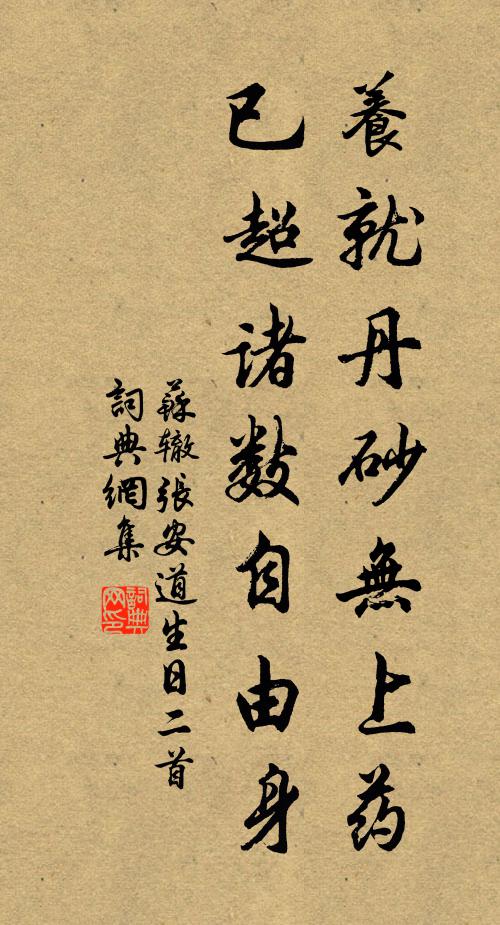 養就丹砂無上药
已超诸数自由身
蘇辙張安道生日二首
詞典網集
詞典
网印